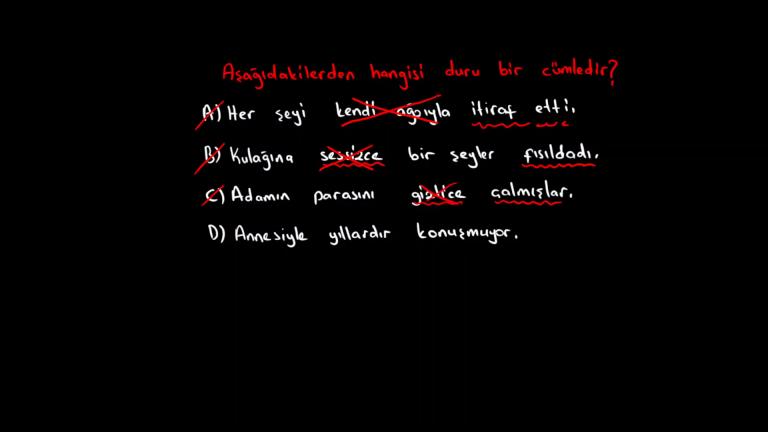 Aşağıdakilerden hangisi duru bir cümledir?
A) Her şeyi kendi ağzıyla itiraf etti.
B) Kulağına sessizce bir şeyler fısıldadı.
C) Adamın parasını gizlice çalmışlar.
D) Annesiyle yıllardır konuşmuyor.